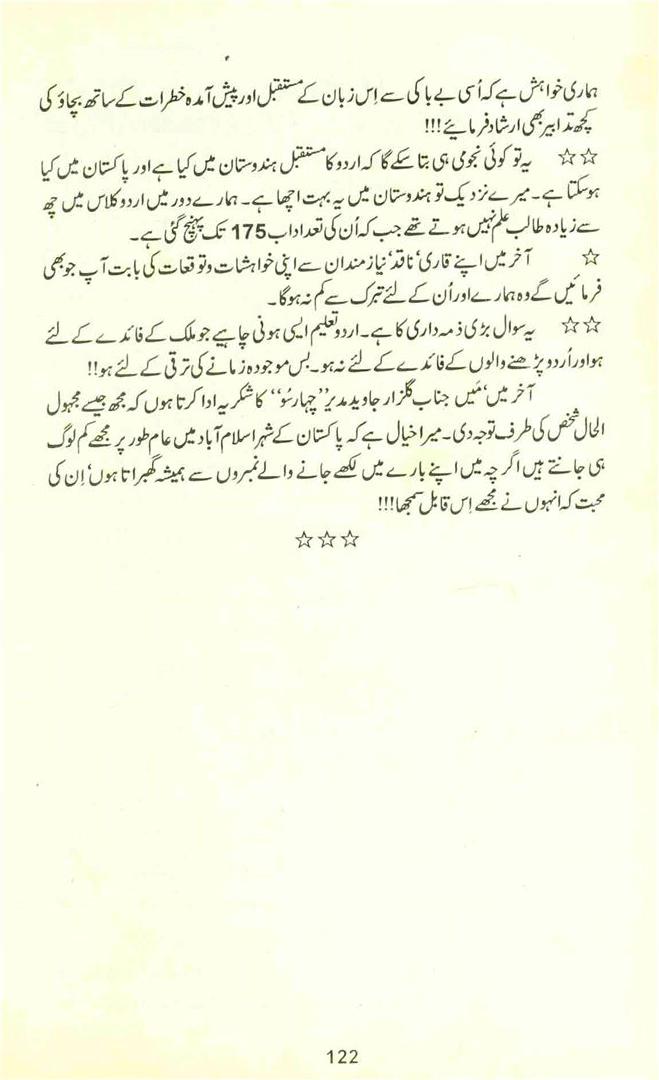 ہماری خواہش ہے کہ اُسی بے باکی سے اِس زبان کے مستقبل اور پیش آمدہ خطرات کے ساتھ بچاؤ کی
کچھ تدابیر بھی ارشاد فرمایئے!!!
☆☆ یہ تو کوئی نجومی ہی بتا سکے گا کہ اردو کا مستقبل ہندوستان میں کیا ہے اور پاکستان میں کیا
ہوسکتا ہے۔ میرے نزدیک تو ہندوستان میں یہ بہت اچھا ہے۔ ہمارے دور میں اردو کلاس میں چھ
سے زیادہ طالب علم نہیں ہوتے تھے جب کہ اُن کی تعداد اب 175 تک پہنچ گئی ہے۔
☆ آخر میں اپنے قاری‘ ناقد‘ نیازمندان سے اپنی خواہشات و توقعات کی بابت آپ جو بھی
فرمائیں گے وہ ہمارے اور اُن کے لئے تبرک سے کم نہ ہوگا۔
☆☆ یہ سوال بڑی ذمہ داری کا ہے۔ اردو تعلیم ایسی ہونی چاہیے جو ملک کے فائدے کے لئے
ہو اور اُردو پڑھنے والوں کے فائدے کے لئے نہ ہو۔ بس موجودہ زمانے کی ترقی کے لئے ہو!!
آخر میں‘ مَیں جناب گلزار جاوید مدیر ’’چہارسُو‘‘ کا شکریہ ادا کرتا ہوں کہ مجھ جیسے مجہول
الحال شخص کی طرف توجہ دی۔ میرا خیال ہے کہ پاکستان کے شہر اسلام آباد میں عام طور پر مجھے کم لوگ
ہی جانتے ہیں اگرچہ میں اپنے بارے میں لکھے جانے والے نمبروں سے ہمیشہ گھبراتا ہوں‘ اِن کی
محبت کہ انہوں نے مجھے اِس قابل سمجھا!!!
☆☆☆
122